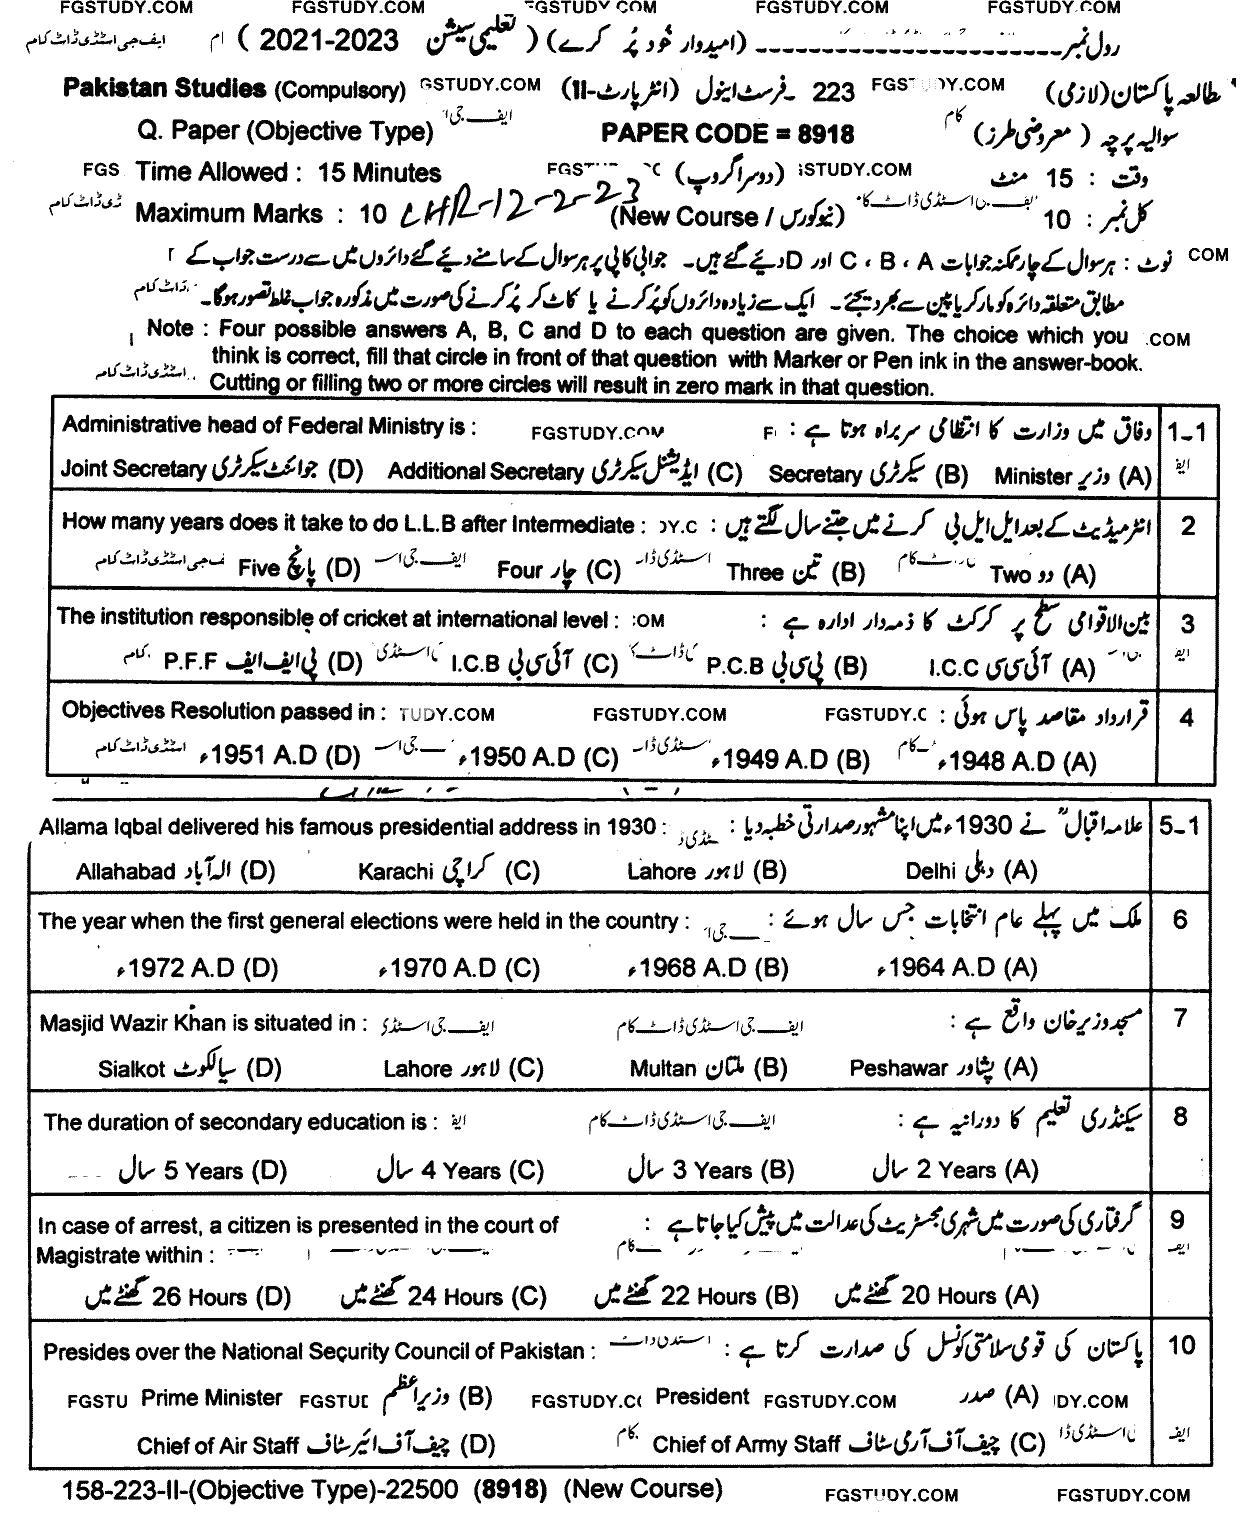 FGSTUDY.COM FGSTUDY.COM FGSTUDY.COM FGSTUDY.COM FGSTUDY.COM
رول نمبر ---------------------- (امیدوار خود پُر کرے) ( تعلیمی سیشن 2021-2023 ) ایف جی اسٹڈی ڈاٹ کام
Pakistan Studies (Compulsory) GSTUDY.COM (انٹر پارٹ-II) فرسٹ اینول- 223 FGS DY.COM مطالعہ پاکستان (لازمی)
Q. Paper (Objective Type) PAPER CODE = 8918 سوالیہ پرچہ ( معروضی طرز)
FGS Time Allowed : 15 Minutes (دوسرا گروپ) STUDY.COM وقت : 15 منٹ
Maximum Marks : 10 LHR-12-2-23 (New Course / نیو کورس) کل نمبر : 10
نوٹ : ہر سوال کے چار ممکنہ جوابات A ، B ، C اور D دیئے گئے ہیں۔ جوابی کاپی پر ہر سوال کے سامنے دیئے گئے دائروں میں سے درست جواب کے COM
مطابق متعلقہ دائرہ کو مارکر یا پین سے بھر دیجئے۔ ایک سے زیادہ دائروں کو پُر کرنے یا کاٹ کر پُر کرنے کی صورت میں مذکورہ جواب غلط تصور ہوگا۔
Note : Four possible answers A, B, C and D to each question are given. The choice which you .COM
think is correct, fill that circle in front of that question with Marker or Pen ink in the answer-book.
Cutting or filling two or more circles will result in zero mark in that question.
Administrative head of Federal Ministry is : FGSTUDY.COM وفاق میں وزارت کا انتظامی سربراہ ہوتا ہے : 1-1
Joint Secretary جوائنٹ سیکرٹری (D) Additional Secretary ایڈیشنل سیکرٹری (C) Secretary سیکرٹری (B) Minister وزیر (A)
How many years does it take to do L.L.B after Intermediate : DY.C انٹرمیڈیٹ کے بعد ایل ایل بی کرنے میں جتنے سال لگتے ہیں : 2
Five پانچ (D) Four چار (C) Three تین (B) Two دو (A)
The institution responsible of cricket at international level : COM بین الاقوامی سطح پر کرکٹ کا ذمہ دار ادارہ ہے : 3
P.F.F پی ایف ایف (D) I.C.B آئی سی بی (C) P.C.B پی سی بی (B) I.C.C آئی سی سی (A)
Objectives Resolution passed in : TUDY.COM FGSTUDY.COM FGSTUDY.C قرارداد مقاصد پاس ہوئی : 4
ء1951 A.D (D) ء1950 A.D (C) ء1949 A.D (B) ء1948 A.D (A)
Allama Iqbal delivered his famous presidential address in 1930 : علامہ اقبالؒ نے 1930ء میں اپنا مشہور صدارتی خطبہ دیا : 5-1
Allahabad الہ آباد (D) Karachi کراچی (C) Lahore لاہور (B) Delhi دہلی (A)
The year when the first general elections were held in the country : ملک میں پہلے عام انتخابات جس سال ہوئے : 6
ء1972 A.D (D) ء1970 A.D (C) ء1968 A.D (B) ء1964 A.D (A)
Masjid Wazir Khan is situated in : ایف جی اسٹڈی ایف جی اسٹڈی ڈاٹ کام مسجد وزیر خان واقع ہے : 7
Sialkot سیالکوٹ (D) Lahore لاہور (C) Multan ملتان (B) Peshawar پشاور (A)
The duration of secondary education is : ایف ایف جی اسٹڈی ڈاٹ کام سیکنڈری تعلیم کا دورانیہ ہے : 8
5 Years سال (D) 4 Years سال (C) 3 Years سال (B) 2 Years سال (A)
In case of arrest, a citizen is presented in the court of گرفتاری کی صورت میں شہری مجسٹریٹ کی عدالت میں پیش کیا جاتا ہے : 9
Magistrate within :
26 Hours گھنٹے میں (D) 24 Hours گھنٹے میں (C) 22 Hours گھنٹے میں (B) 20 Hours گھنٹے میں (A)
Presides over the National Security Council of Pakistan : پاکستان کی قومی سلامتی کونسل کی صدارت کرتا ہے : 10
FGSTU Prime Minister FGSTUD وزیراعظم (B) FGSTUDY.C President FGSTUDY.COM صدر (A) DY.COM
Chief of Air Staff چیف آف ائیر سٹاف (D) Chief of Army Staff چیف آف آرمی سٹاف (C)
158-223-II-(Objective Type)-22500 (8918) (New Course) FGSTUDY.COM FGSTUDY.COM